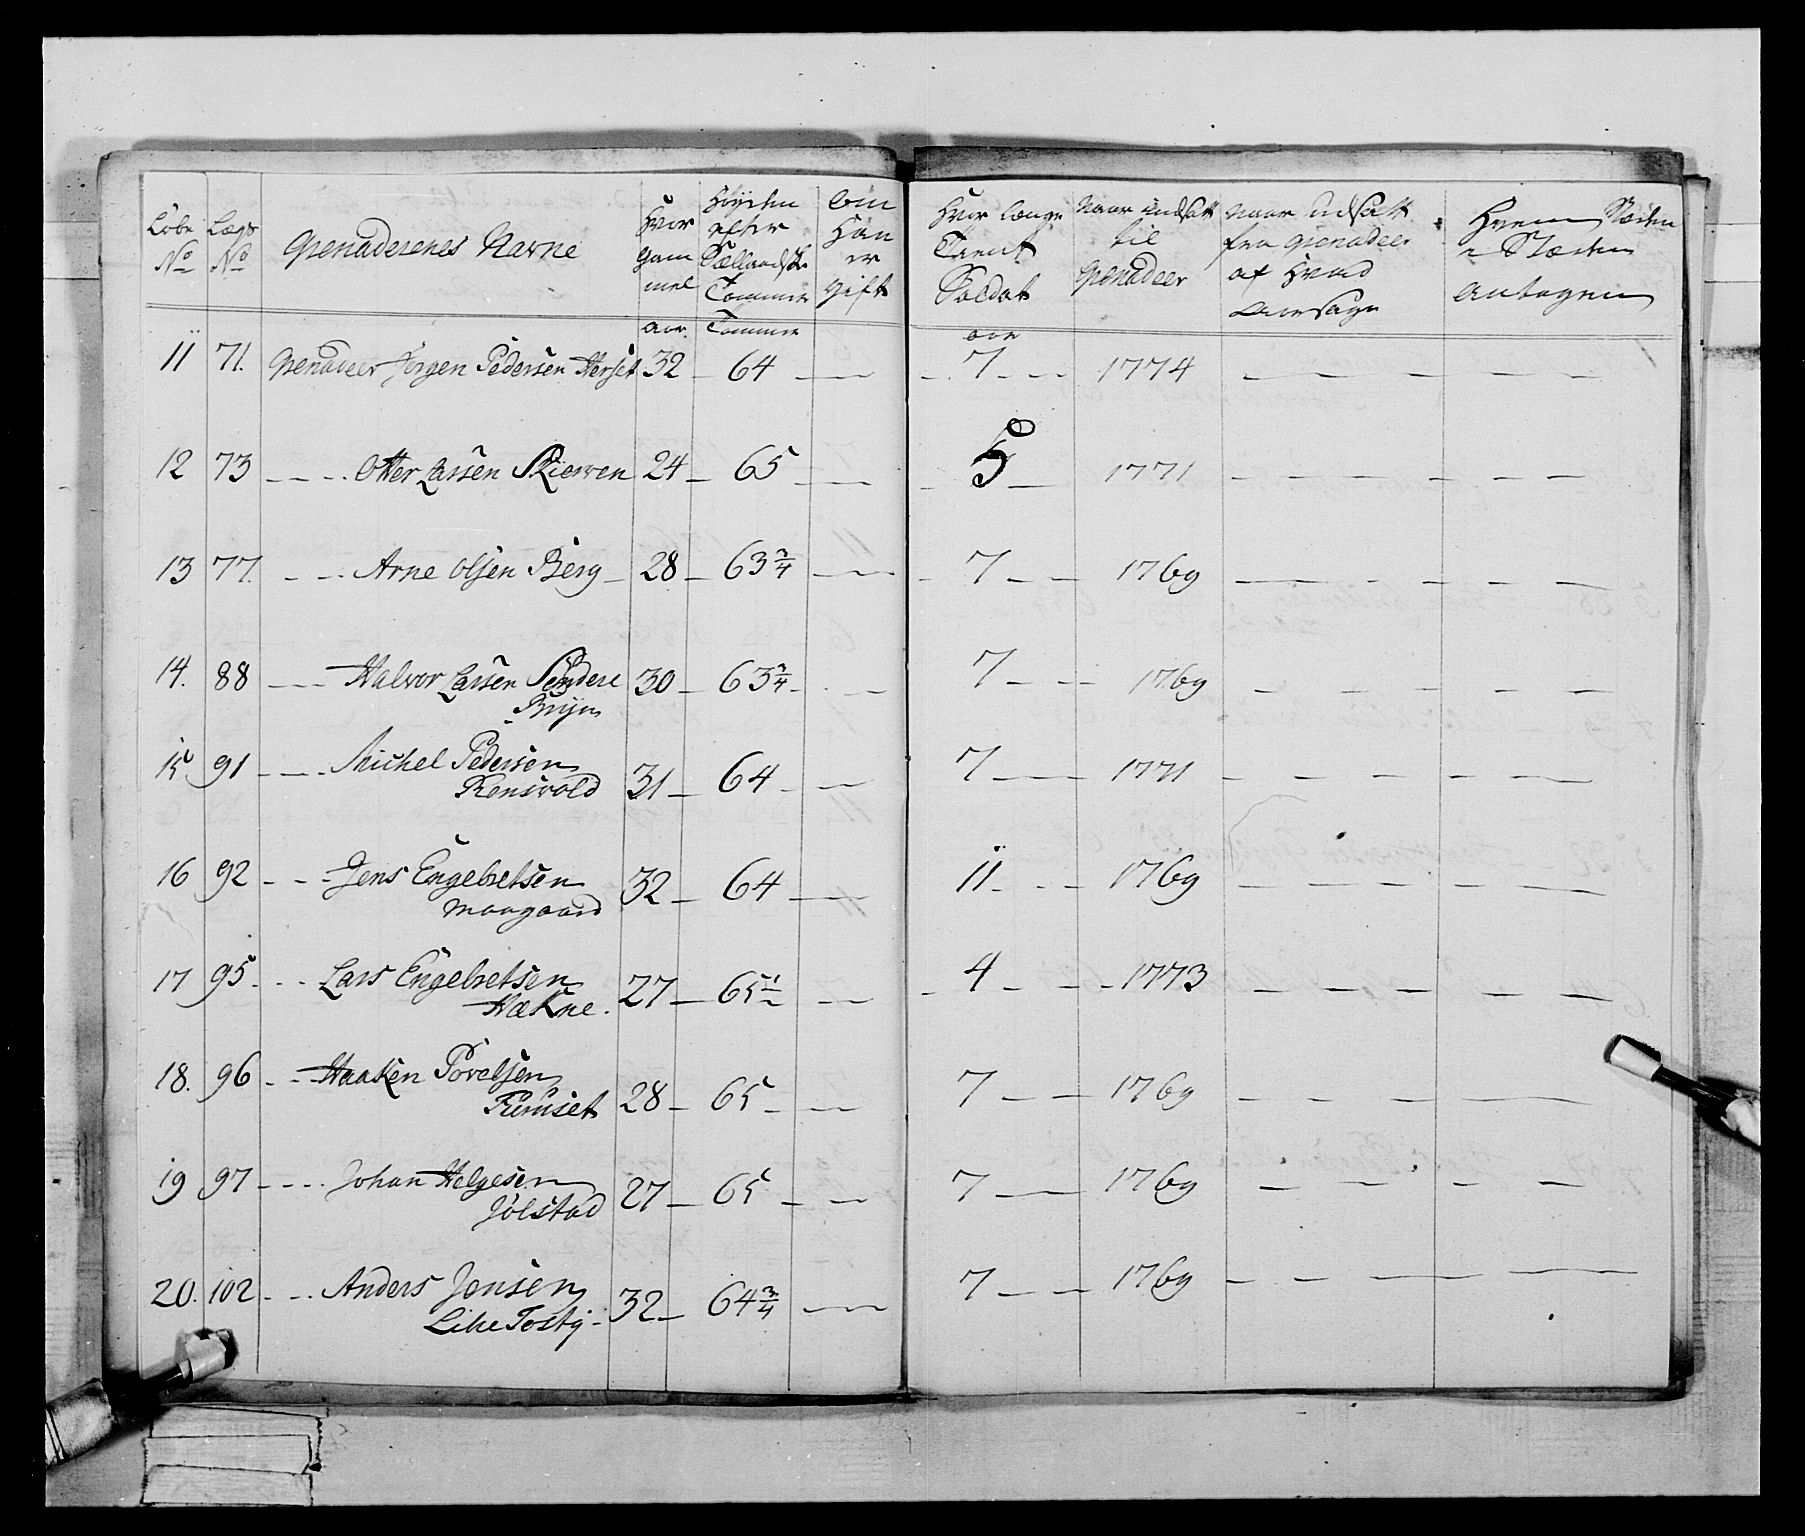 Löbe No | Lægs No | Grenaderenes Navne | Hvor gammel | Höyden efter Sællandske Tommer | Om Han er gift | Hvor længe Tient Soldat | Naar indsatt til Grenadeer | Naar udsatt fra Grenadeer af Hvad Aarsage | Hvem i Stæden Antagen
aar | Tommer | aar
11 71. Grenadeer Jörgen Pedersen Herset 32 — 64 — — 7 — — 1774 — — — — —
12 73 — — Otter Larsen Skierven 24 — 65 — — 5 — 1771 — — — — —
13 77. — — Arne Olsen Berg — 28 — 63 3/4 — — 7 — — 1769 — — — — —
14. 88 — — Halvor Larsen Söndere 30 — 63 3/4 — — 7 — — 1769 — — — — —
Bryn
15 91 — — Michel Pedersen
Rensvold 31 — 64 — — 7 — — 1771 — — — — —
16 92 — — Jens Engebretsen
Maagaard 32 — 64 — — 11 — — 1769 — — — — —
17 95. — — Lars Engebretsen
Hækne. 27 — 65 1/2 — — 4 — — 1773 — — — — —
18. 96 — — Haaken Povelsen
Remset 28 — 65 — — 7 — — 1769 — — — — —
19 97 — — Johan Helgesen
Jölstad 27 — 65 — — 7 — 1769 — — — —
20. 102 — — Anders Jensen
32 — 64 3/4 — — 7 — — 1769 — — — —